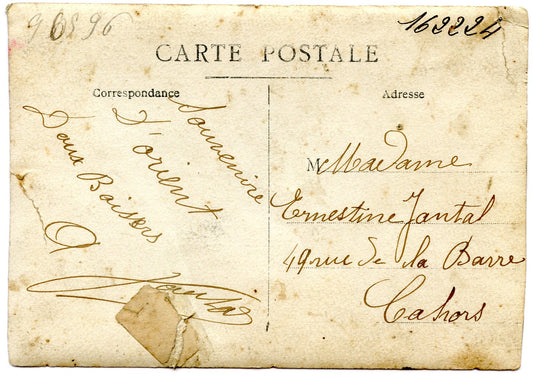 90896
162224
CARTE POSTALE
Correspondance
Adresse
Souvenire
D'orient
Doux Baisers
M Madame
Ernestine Jantal
49 rue de la Barre
Cahors